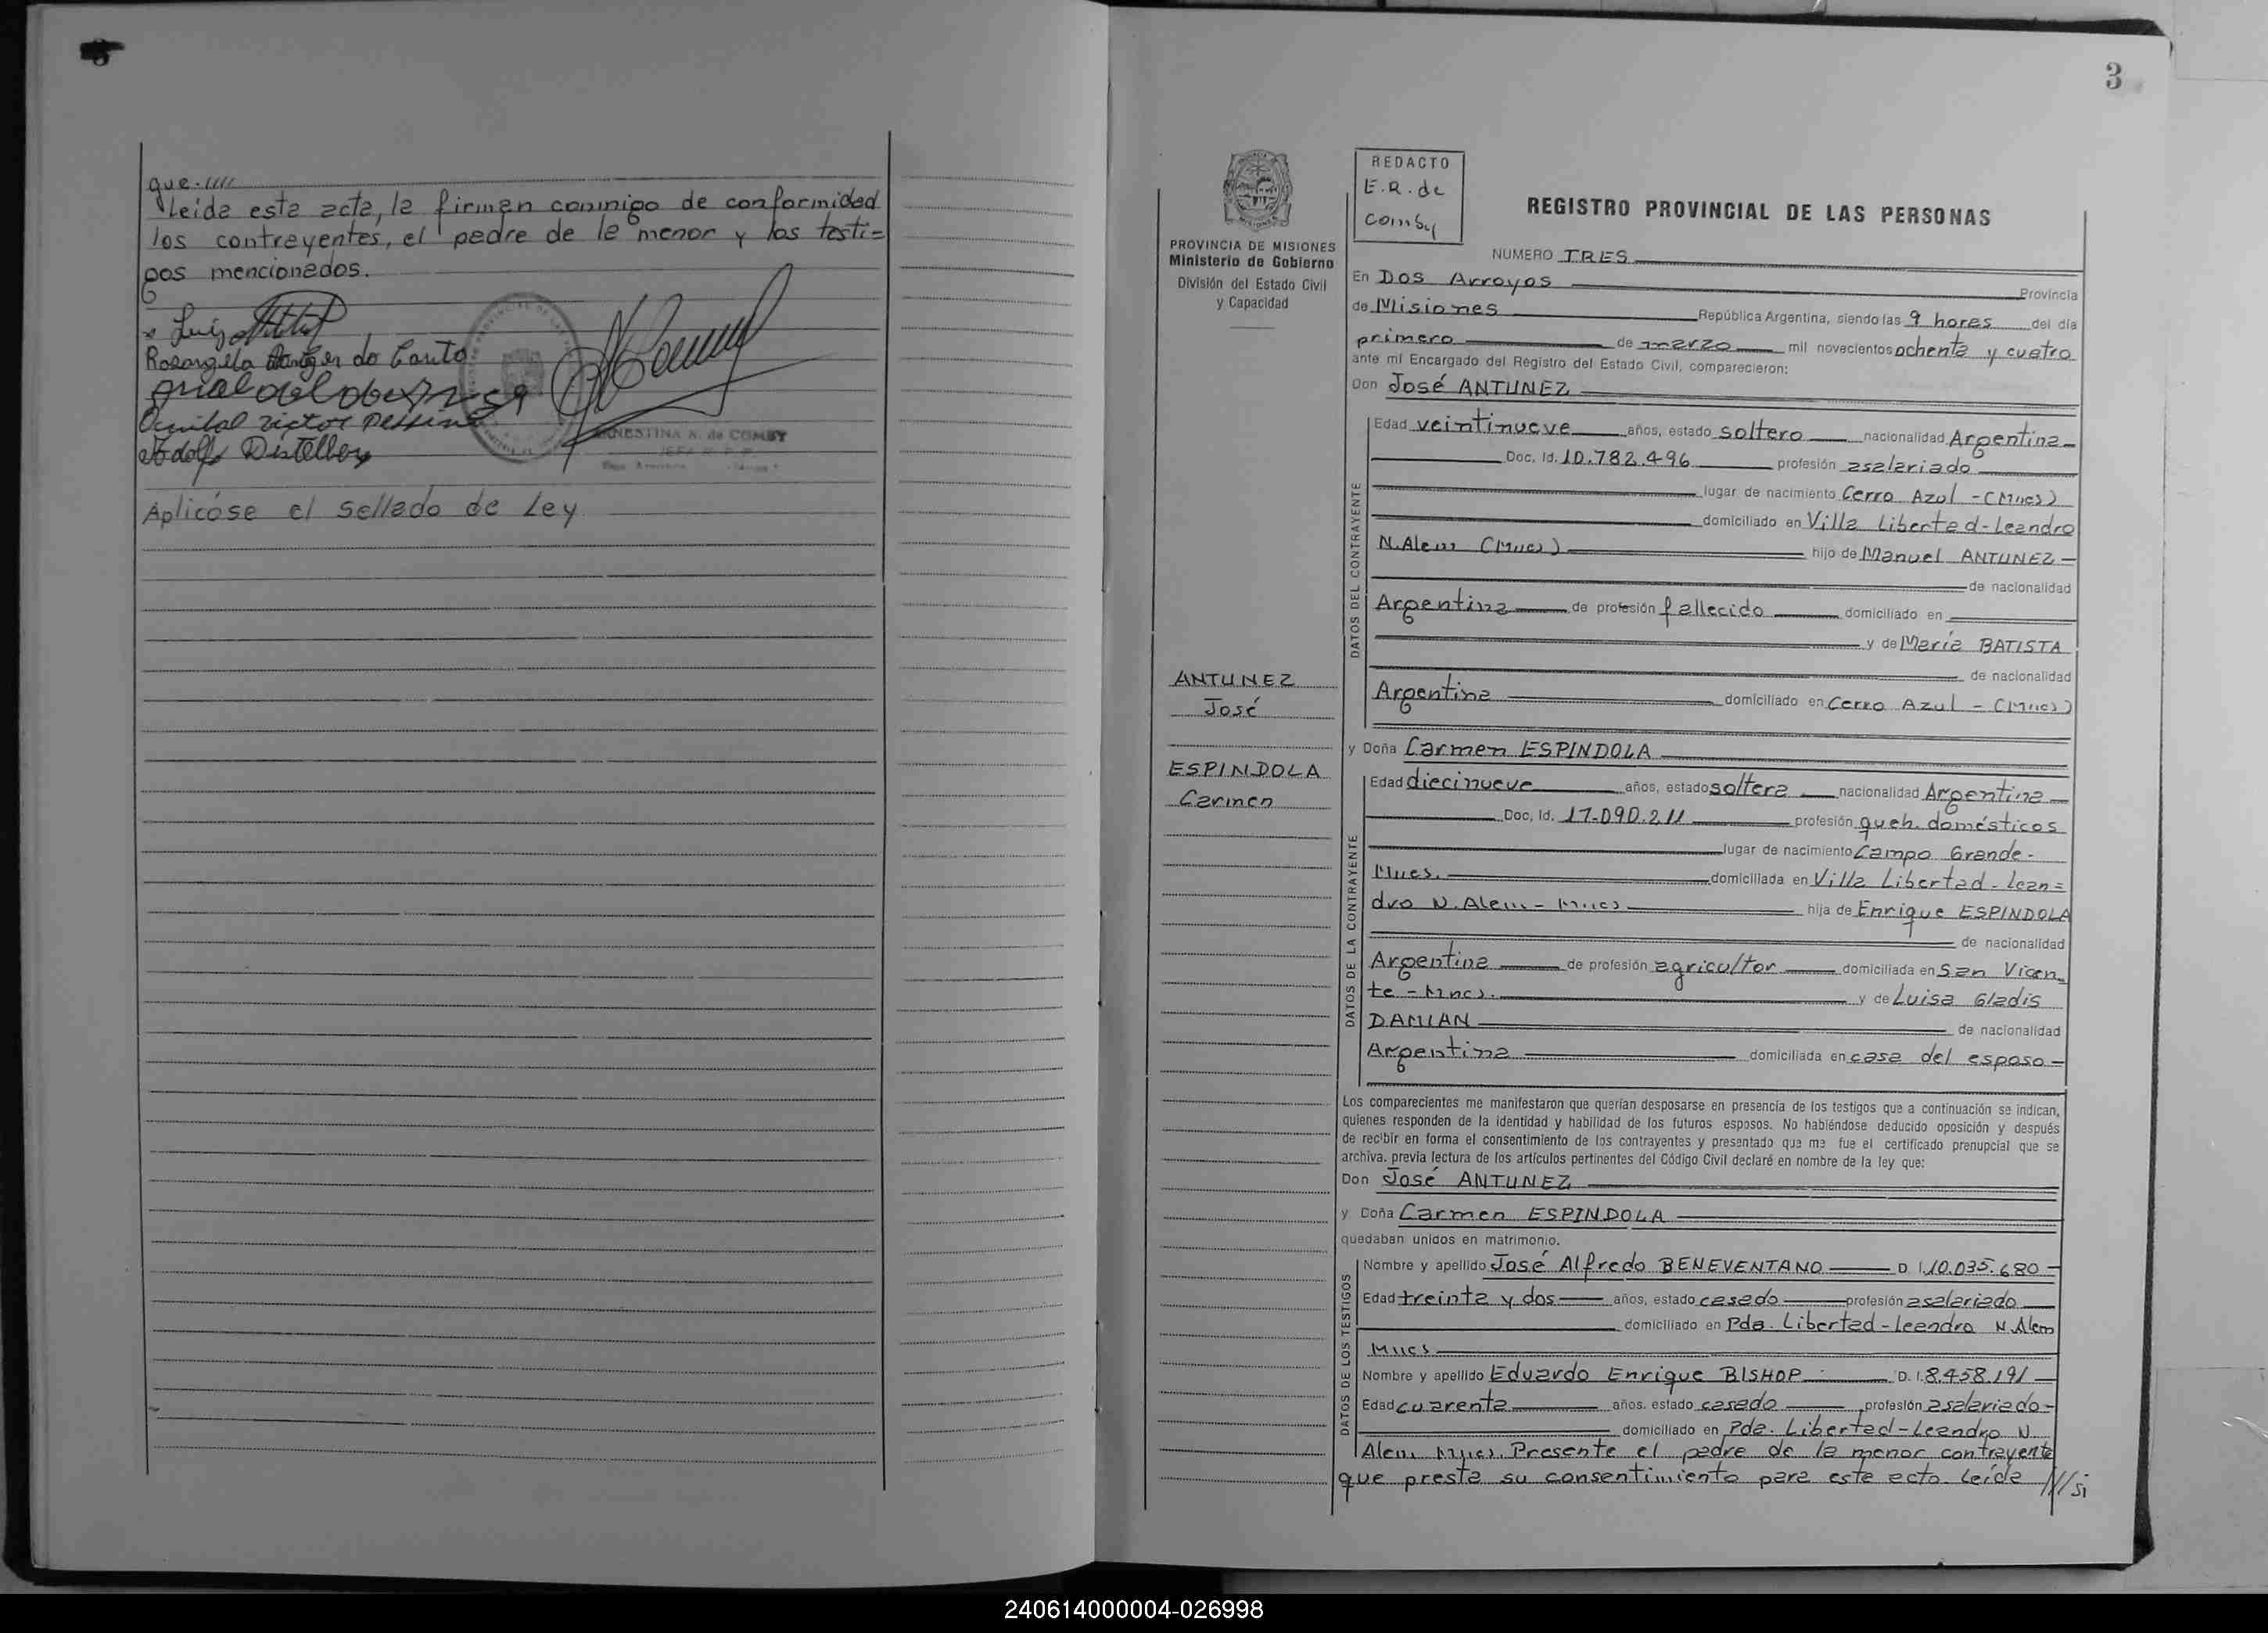 que.////
leída esta acta, la firman conmigo de conformidad
los contrayentes, el padre de la menor y los testi=
gos mencionados.
Luis
Rosangela do Canto
Anibal Victor
Adolfo
ERNESTINA R. de COMBY
Aplicóse el sellado de Ley
3
PROVINCIA DE MISIONES
Ministerio de Gobierno
División del Estado Civil
y Capacidad
REDACTO
E.R. de
Comby
REGISTRO PROVINCIAL DE LAS PERSONAS
NUMERO TRES
En Dos Arroyos Provincia
de Misiones República Argentina, siendo las 9 horas del día
primero de marzo mil novecientos ochenta y cuatro
ante mí Encargado del Registro del Estado Civil, comparecieron:
Don José ANTUNEZ
DATOS DEL CONTRAYENTE
Edad veintinueve años, estado soltero nacionalidad Argentina
Doc. Id. 10.782.496 profesión asalariado
lugar de nacimiento Cerro Azul - (Mnes)
domiciliado en Villa Libertad - Leandro
N. Alem (Mnes) hijo de Manuel ANTUNEZ
de nacionalidad
Argentina de profesión fallecido domiciliado en
y de María BATISTA
de nacionalidad
Argentina domiciliado en Cerro Azul - (Mnes)
ANTUNEZ
José
ESPINDOLA
Carmen
y Doña Carmen ESPINDOLA
DATOS DE LA CONTRAYENTE
Edad diecinueve años, estado soltera nacionalidad Argentina
Doc. Id. 17.090.211 profesión queh. domésticos
lugar de nacimiento Campo Grande -
Mnes. domiciliada en Villa Libertad - Lean=
dro N. Alem - Mnes hija de Enrique ESPINDOLA
de nacionalidad
Argentina de profesión agricultor domiciliada en San Vicen
te - Mnes. y de Luisa Gladis
DAMIAN de nacionalidad
Argentina domiciliada en casa del esposo -
Los comparecientes me manifestaron que querían desposarse en presencia de los testigos que a continuación se indican,
quienes responden de la identidad y habilidad de los futuros esposos. No habiéndose deducido oposición y después
de recibir en forma el consentimiento de los contrayentes y presentado que me fue el certificado prenupcial que se
archiva. previa lectura de los artículos pertinentes del Código Civil declaré en nombre de la ley que:
Don José ANTUNEZ
y Doña Carmen ESPINDOLA
quedaban unidos en matrimonio.
DATOS DE LOS TESTIGOS
Nombre y apellido José Alfredo BENEVENTANO D. I. 10.035.680
Edad treinta y dos años, estado casado profesión asalariado
domiciliado en Pda. Libertad - Leandro N. Alem
Mnes
Nombre y apellido Eduardo Enrique BISHOP D. I. 8.458.191
Edad cuarenta años. estado casado profesión asalariado -
domiciliado en Pda. Libertad - Leandro N.
Alem Mnes. Presente el padre de la menor contrayente
que presta su consentimiento para este acto. Leída ///si
240614000004-026998